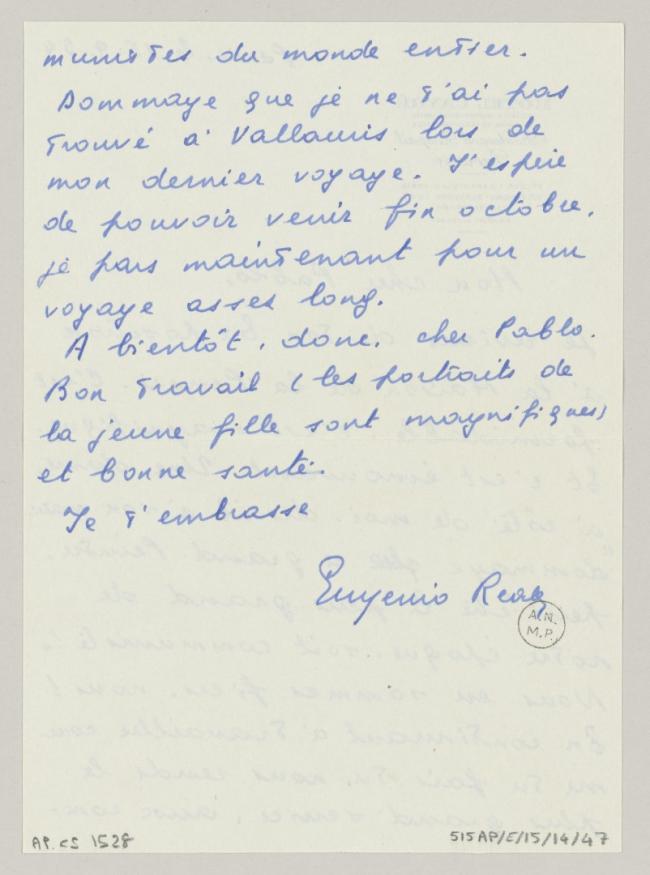 munistes du monde entier.
Dommage que je ne t'ai pas
trouvé a' Vallauris lors de
mon dernier voyage. J'espère
de pouvoir venir fin octobre.
je pars maintenant pour un
voyage asses long.
A bientôt, donc, cher Pablo.
Bon travail (les portraits de
la jeune fille sont magnifiques)
et bonne santé.
Je t'embrasse
Eugenio Reale
A.N.
M.P.
AP. CS 1528
515AP/E/15/14/47